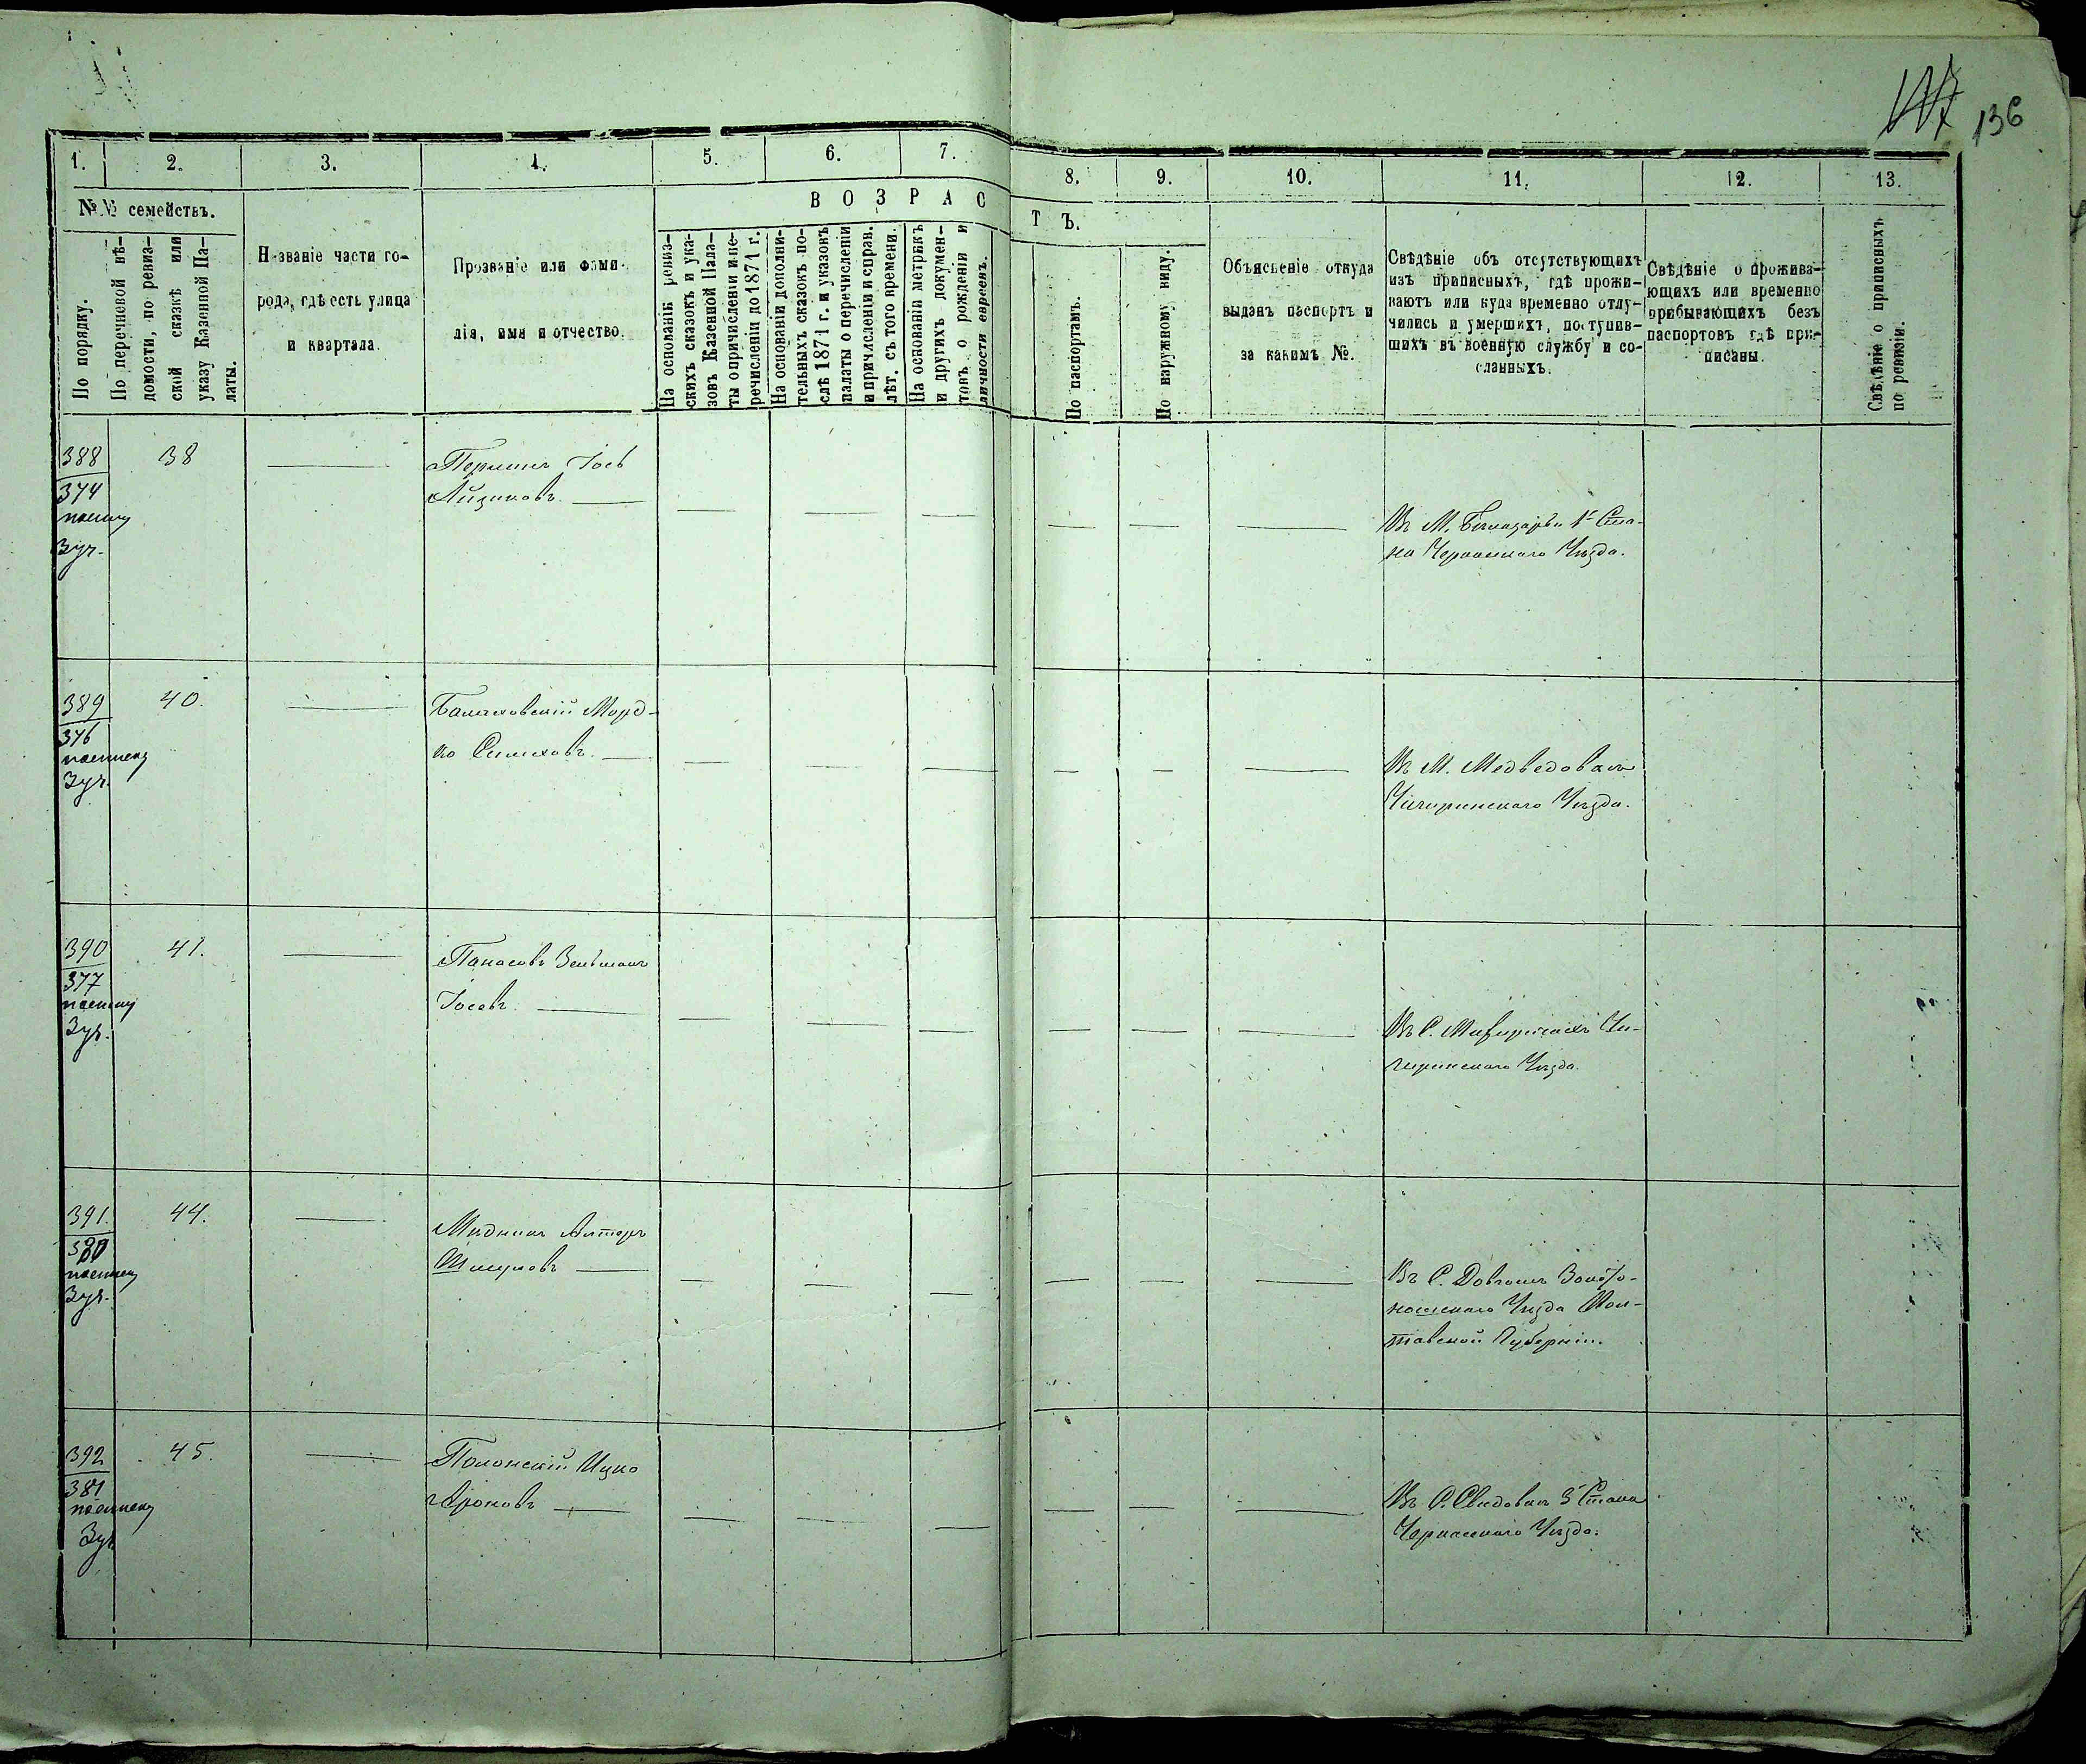 136
1. 2. 3. 4. 5. 6. 7. 8. 9. 10. 11. 12. 13.
№№ семействъ.
По порядку.
По перечневой вѣ-
домости, по ревиз-
ской сказкѣ или
указу Казенной Па-
латы.
Названіе части го-
рода, гдѣ есть улица
и квартала.
Прозваніе или фами-
лія, имя и отчество.
ВОЗРАСТЪ.
На основаніи ревиз-
скихъ сказокъ и ука-
зовъ Казенной Пала-
ты о причисленіи и пе-
речисленіи до 1871 г.
На основаніи дополни-
тельныхъ сказокъ по-
слѣ 1871 г. и указовъ
палаты о перечисленіи
и причисленіи и справ.
лѣт. съ того времени.
На основаніи метрикъ
и другихъ докумен-
товъ о рожденіи и
личности евреевъ.
По паспортамъ.
По наружному виду.
Объясненіе откуда
выданъ паспортъ и
за какимъ №.
Свѣдѣніе объ отсутствующихъ
изъ приписныхъ, гдѣ прожи-
ваютъ или куда временно отлу-
чились и умершихъ, поступив-
шихъ въ военную службу и со-
сланныхъ.
Свѣдѣніе о прожива-
ющихъ или временно
прибывающихъ безъ
паспортовъ гдѣ при-
писаны.
Свѣдѣніе о приписныхъ
по ревизіи.
388 38
374
3 уч.
Іось
Айзиковъ
Въ М. 1г Ста-
на Черкасскаго Уѣзда.
389 40.
376
3 уч.
Морд-
ко
Въ М. Медведовкѣ
Чигиринскаго Уѣзда.
390 41.
377
3 уч.
Панасовъ Зельманъ
Іосевъ
Въ С. Чи-
гиринскаго Уѣзда.
391. 44.
380
3 уч.
Мидникъ Алтеръ
Въ С. Золото-
ношскаго Уѣзда Пол-
тавской Губерніи.
392 45.
381
3 уч
Полонскій Ицко
Ароновъ
Въ С. Свидовкѣ 3 Стана
Черкасскаго Уѣзда.